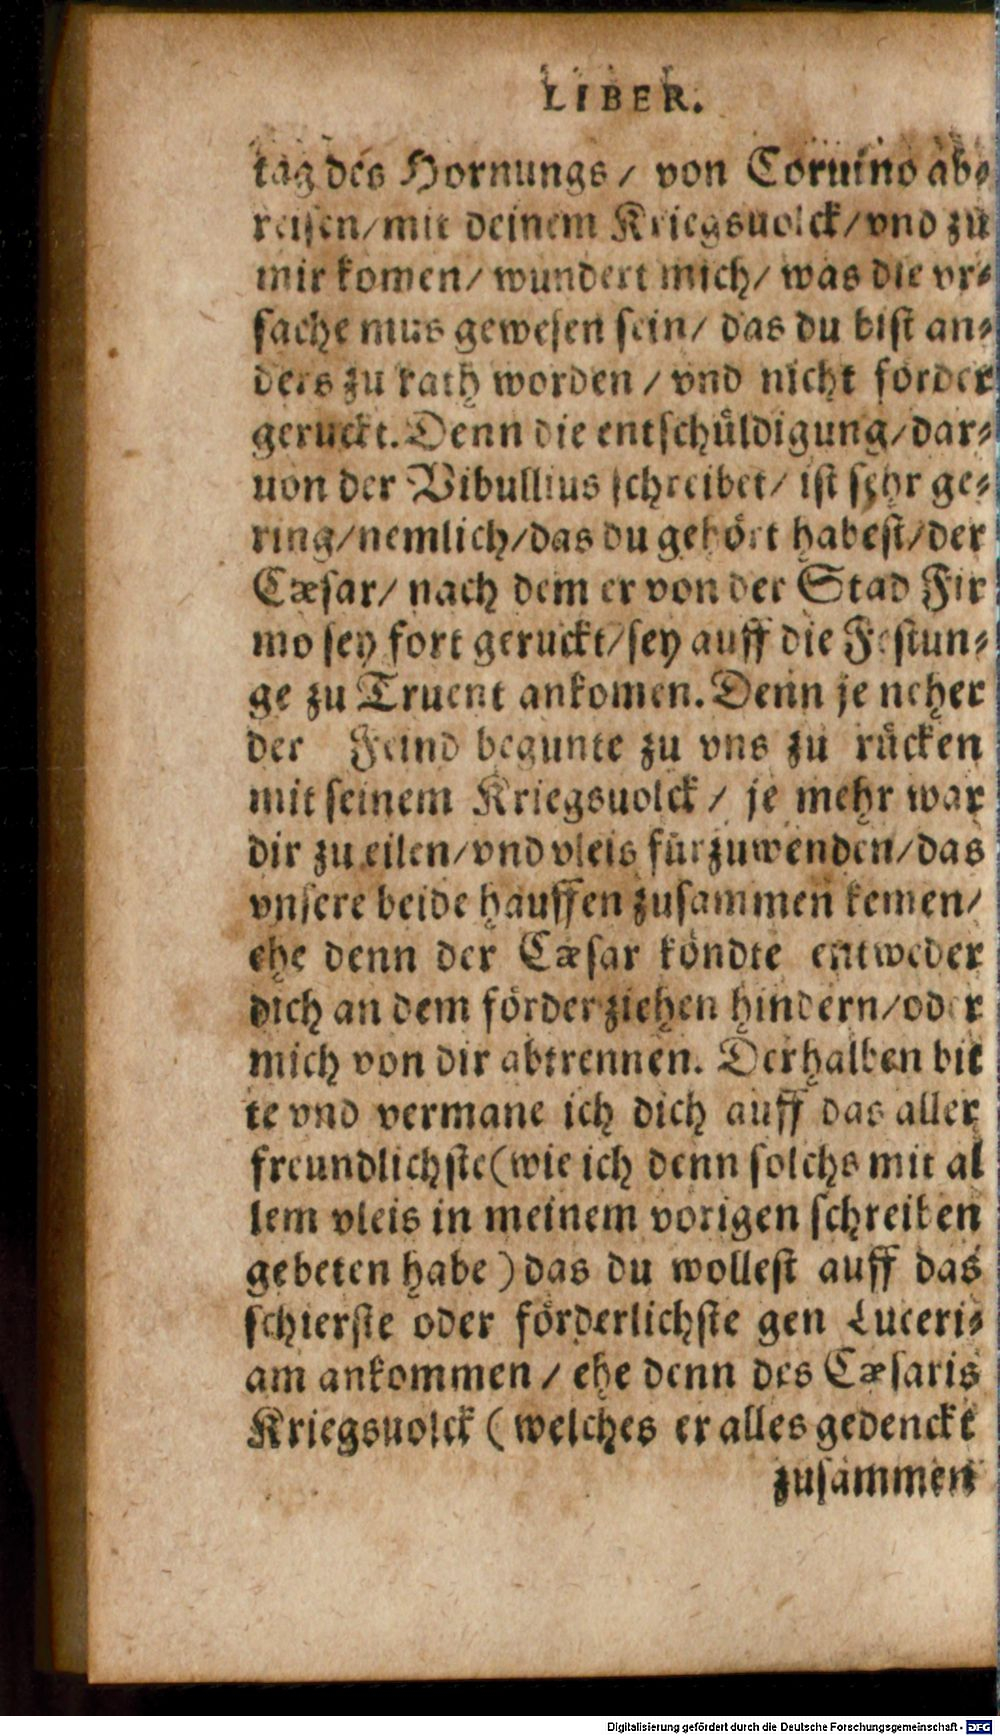 LIBER.
tag des Hornungs / von Coruino ab⸗
reisen/mit deinem Kriegsuolck/vnd zu
mir komen/ wundert mich/ was die vr⸗
sache mus gewesen sein/ das du bist an⸗
ders zu rath worden / vnd nicht förder
geruckt. Denn die entschüldigung/dar⸗
uon der Vibullius schreibet/ ist sehr ge⸗
ring/nemlich/das du gehört habest/der
Cæsar/ nach dem er von der Stad Fir
mo sey fort geruckt/sey auff die Festun⸗
ge zu Truent ankomen. Denn je neher
der Feind begunte zu vns zu rücken
mit seinem Kriegsuolck / je mehr war
dir zu eilen/vnd vleis fürzuwenden/das
vnsere beide hauffen zusammen kemen/
ehe denn der Cæsar köndte entweder
dich an dem förder ziehen hindern/oder
mich von dir abtrennen. Derhalben bit
te vnd vermane ich dich auff das aller
freundlichste(wie ich denn solchs mit al
lem vleis in meinem vorigen schreiben
gebeten habe ) das du wollest auff das
schierste oder förderlichste gen Luceri⸗
am ankommen / ehe denn des Cæsaris
Kriegsuolck ( welches er alles gedenckt
zusammen
Digitalisierung gefördert durch die Deutsche Forschungsgemeinschaft - DFG